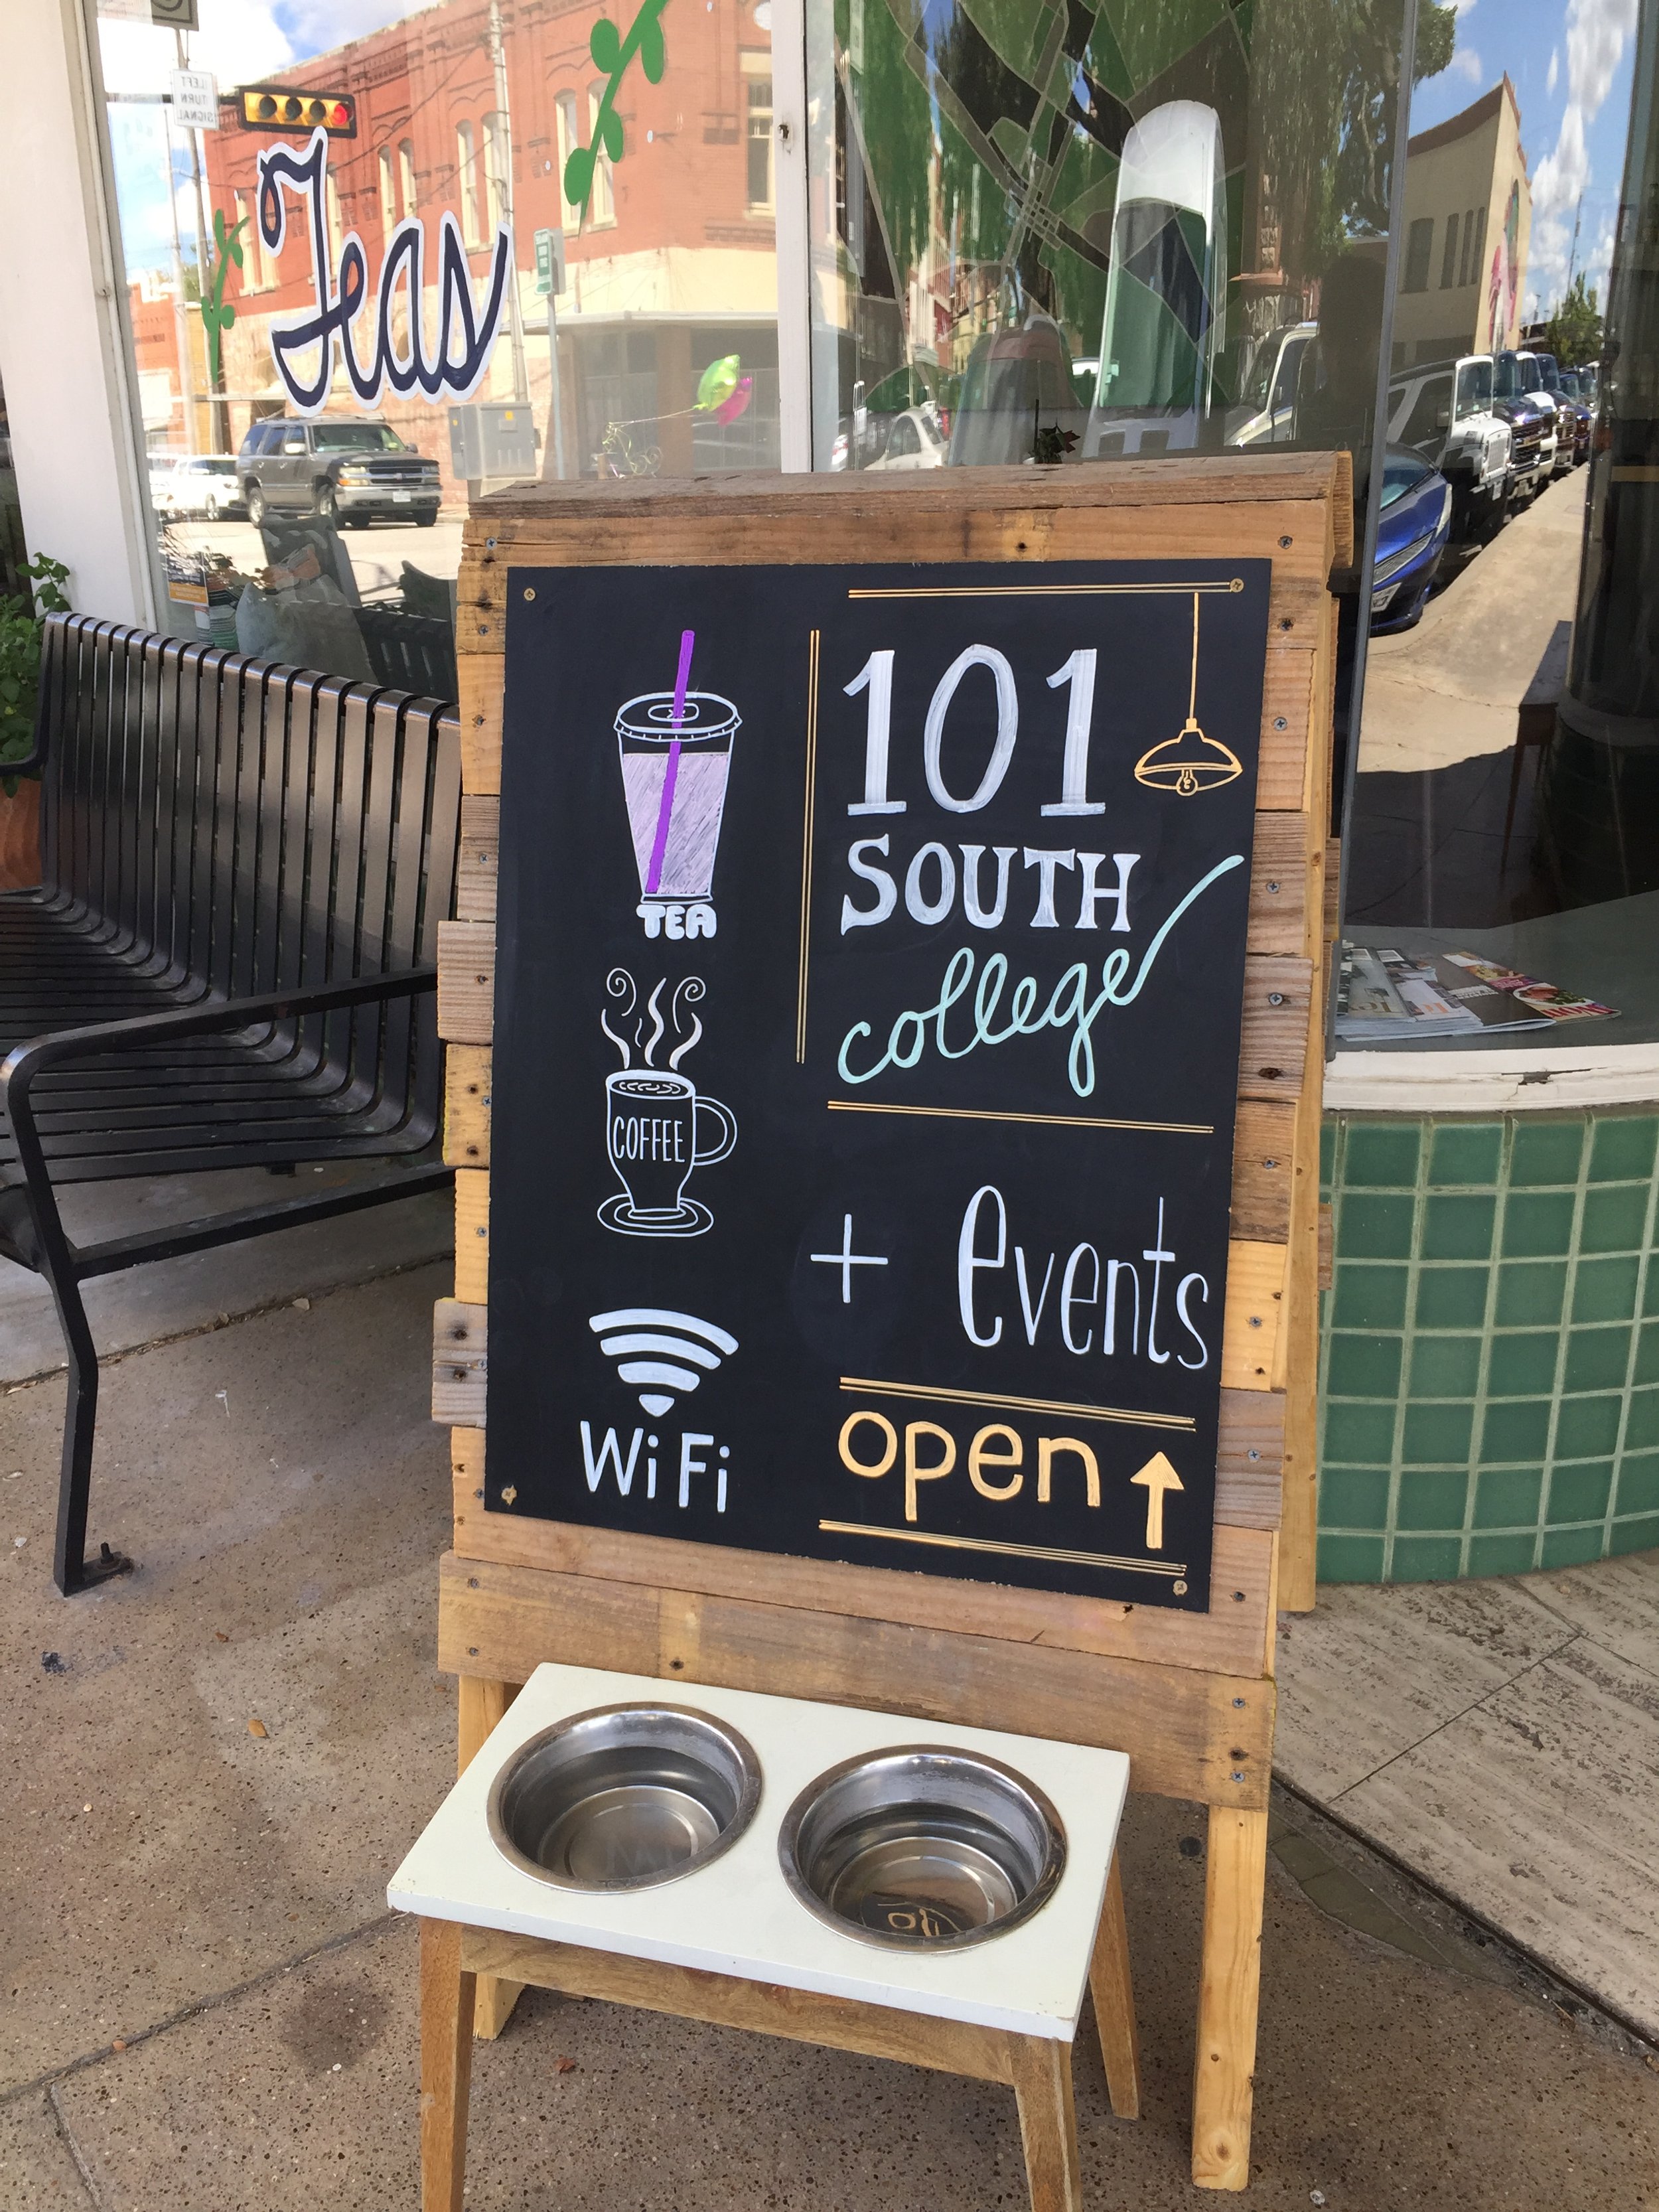 Teas
TEA
COFFEE
WiFi
101
SOUTH
college
+ events
open ↑
LEFT
TURN
SIGNAL